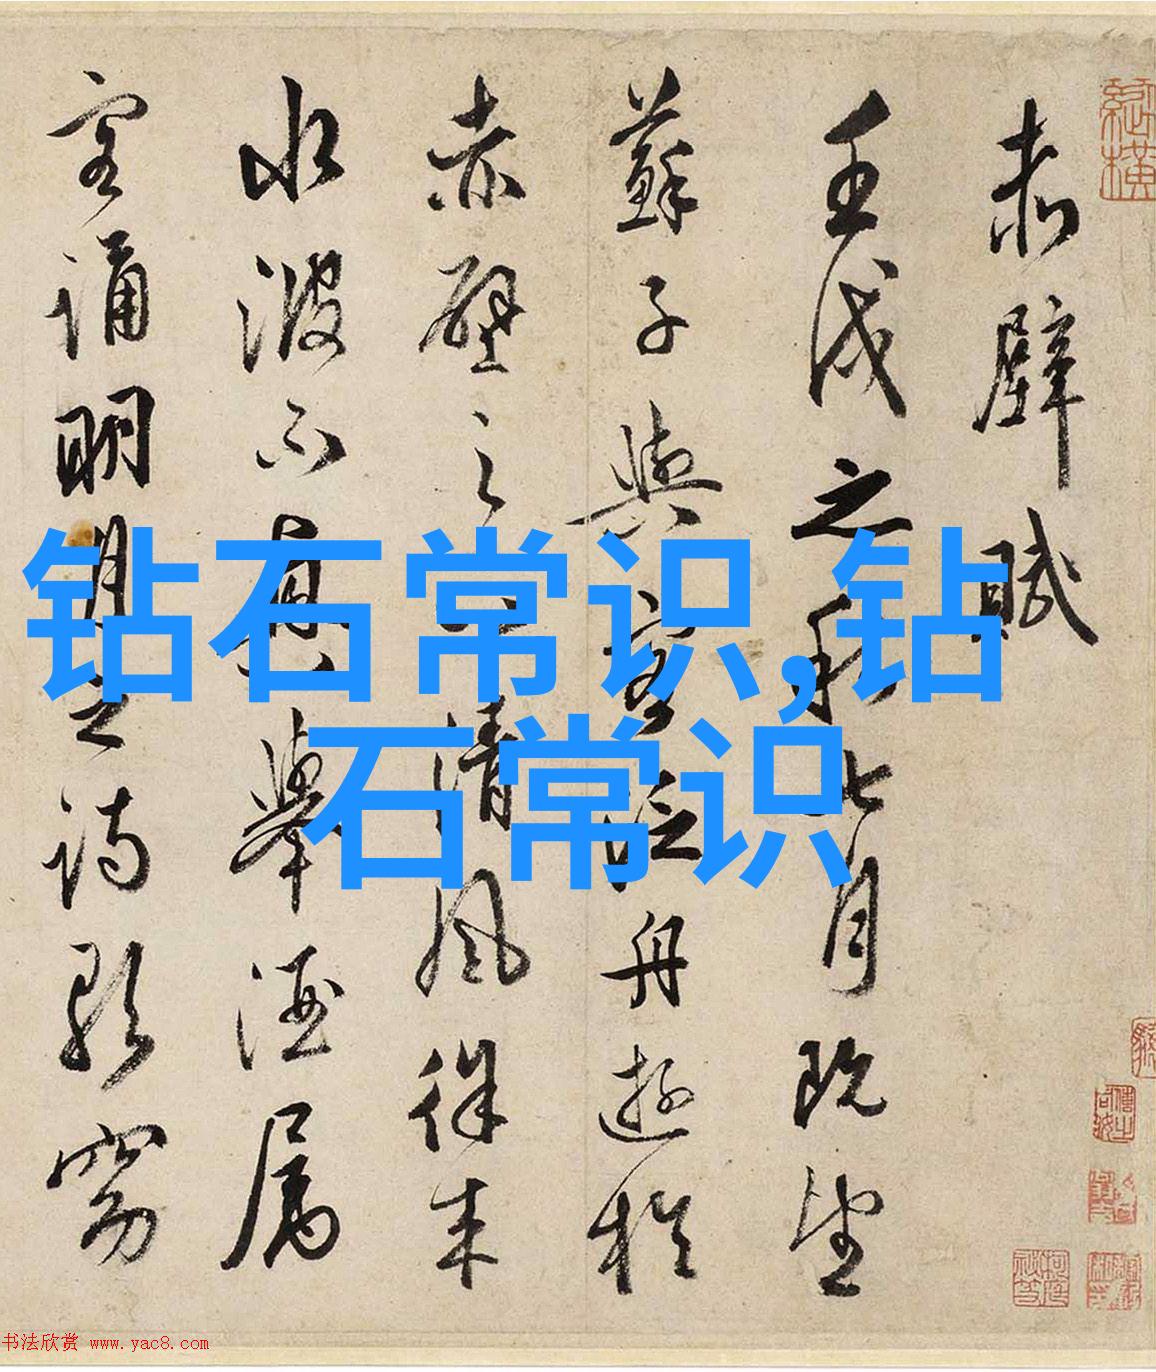 赤壁賦
壬戌之秋七月既望
蘇子與客泛舟遊於
赤壁之下清風徐来
水波不興舉酒属
客诵明月之诗歌窈
钻石常识,钻
石常识
书法欣赏 www.yac8.com